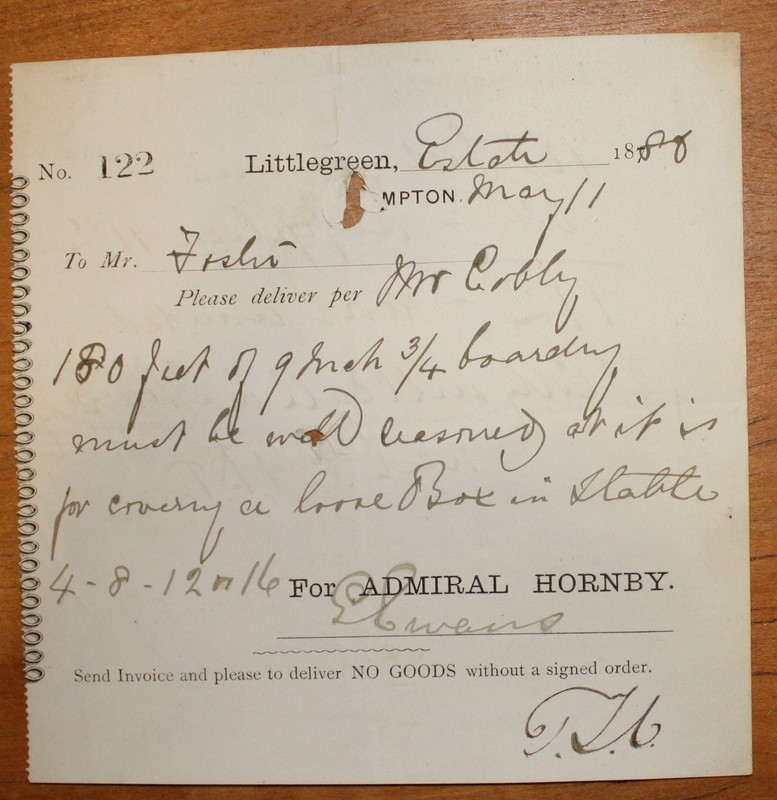 No. 122 Littlegreen, Estate 1880
MPTON. May 11
To Mr. Foster
Please deliver per Mr Cobby
180 feet of 9 Inch 3/4 boarding
must be well seasoned as it is
for covering a loose Box in Stable
4 - 8 - 12 or 16 For ADMIRAL HORNBY.
E Evans
Send Invoice and please to deliver NO GOODS without a signed order.